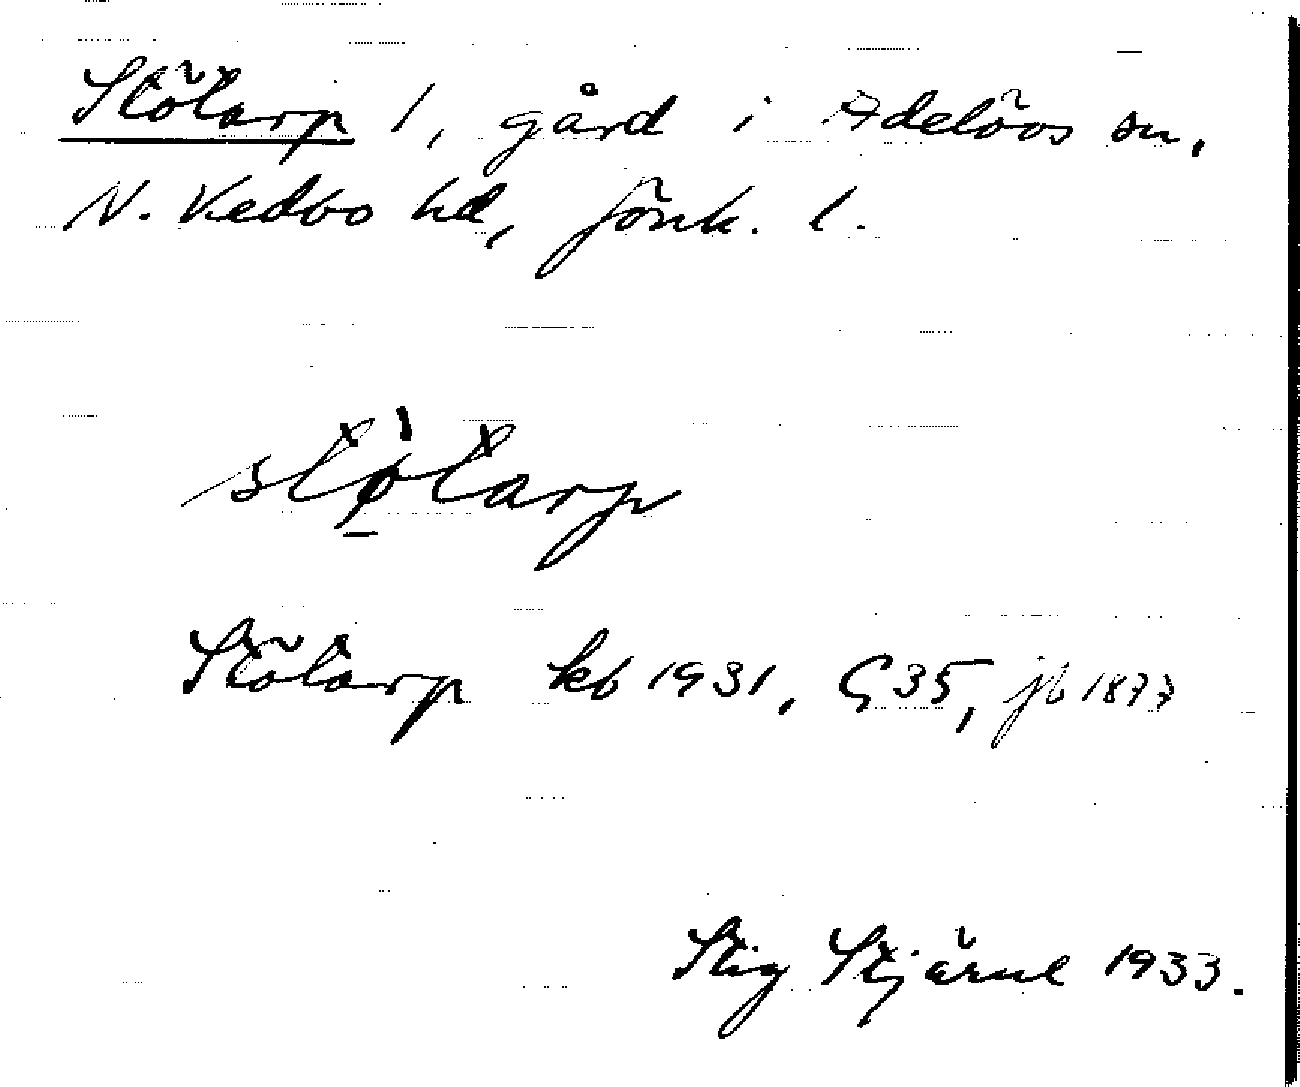 Stötarp 1, gård i Adelövs sn,
N. Vedbo hd, Jönk. l.
stø̀tarp
Stötarp kb 1931, G 35, jb 1877
Stig Stjärne 1933.